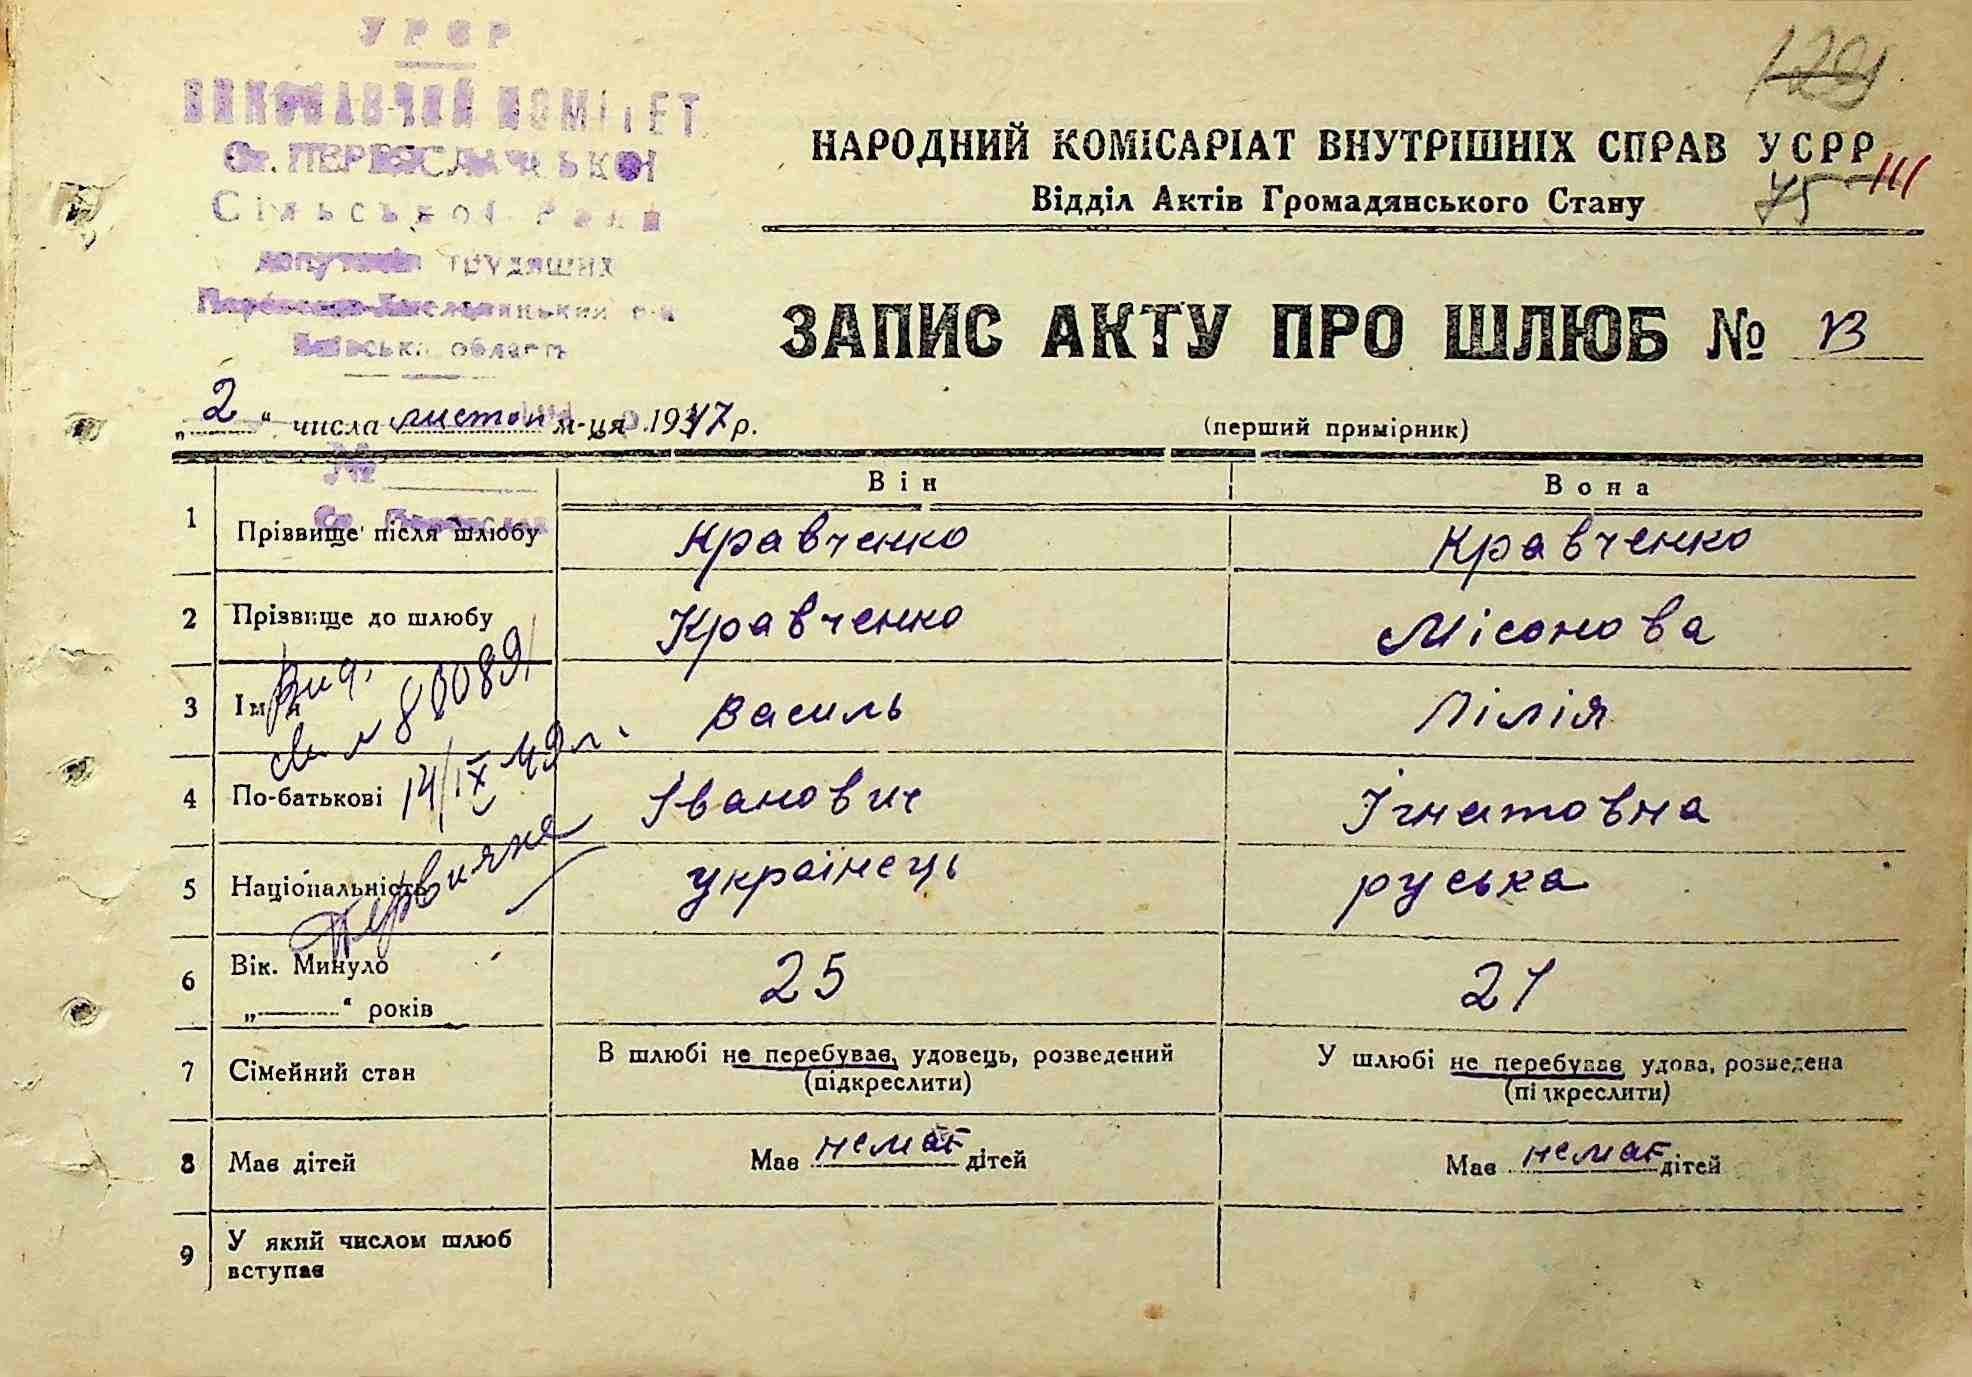 УРСР
ВИКОНАВЧИЙ КОМІТЕТ
Ст. ПЕРЕЯСЛАВСЬКОЇ
Сільської Ради
депутатів трудящих
Переяслав-Хмельницький р-н
Київська область
129
НАРОДНИЙ КОМІСАРІАТ ВНУТРІШНІХ СПРАВ УСРР
Відділ Актів Громадянського Стану
75 111
ЗАПИС АКТУ ПРО ШЛЮБ № 13
„2“ числа листоп м-ця 1947 р.
(перший примірник)
№
Він Вона
1 Прізвище після шлюбу Кравченко Кравченко
2 Прізвище до шлюбу Кравченко Місонова
3 Ім'я Василь Лілія
4 По-батькові Іванович Ігнатовна
5 Національність українець руська
6 Вік. Минуло „——“ років 25 21
7 Сімейний стан В шлюбі не перебуває, удовець, розведений У шлюбі не перебуває удова, розведена
(підкреслити) (підкреслити)
8 Має дітей Має немає дітей Має немає дітей
9 У який числом шлюб
вступає
Вид.
14/IX 49 г.